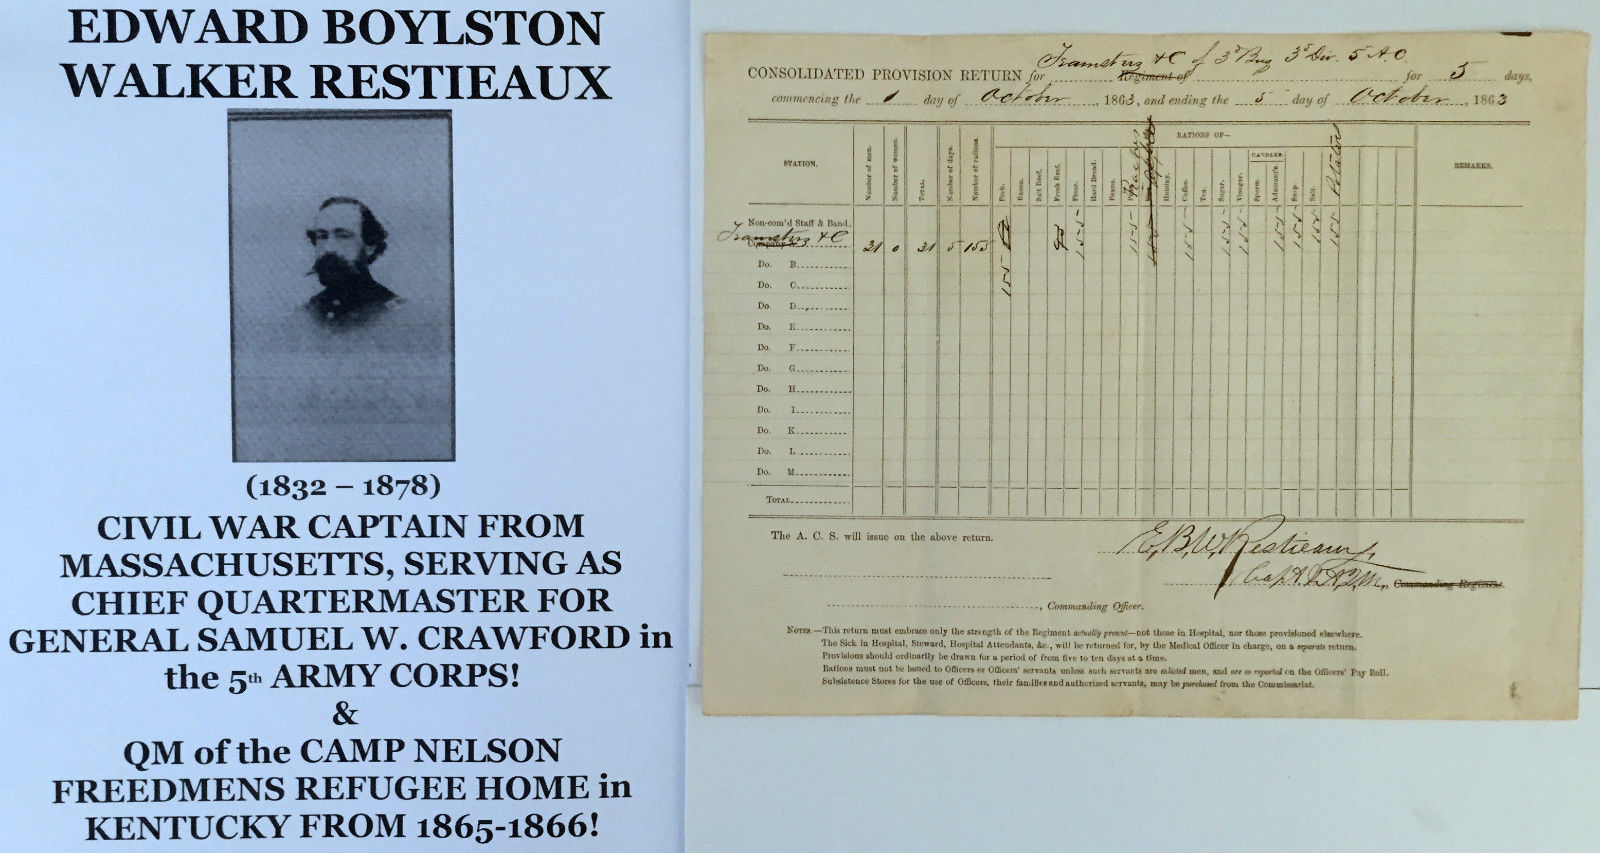 EDWARD BOYLSTON
WALKER RESTIEAUX
(1832 – 1878)
CIVIL WAR CAPTAIN FROM
MASSACHUSETTS, SERVING AS
CHIEF QUARTERMASTER FOR
GENERAL SAMUEL W. CRAWFORD in
the 5th ARMY CORPS!
&
QM of the CAMP NELSON
FREEDMENS REFUGEE HOME in
KENTUCKY FROM 1865-1866!
Teamsters &C of 3d Brig 3d Div. 5 A.C.
CONSOLIDATED PROVISION RETURN for Regiment of for 5 days,
commencing the 1 day of October, 1863, and ending the 5 day of October, 1863
RATIONS OF—
STATION.
Number of men.
Number of women.
TOTAL.
Number of days.
Number of rations.
Pork.
Bacon.
Salt Beef.
Fresh Beef.
Flour.
Hard Bread.
Beans.
Hominy.
Coffee.
Tea.
Sugar.
Vinegar.
CANDLES.
Sperm.
Adamant'e.
Soap.
Salt.
Potatoes
REMARKS.
Non-com'd Staff & Band.
Teamsters &C 31 0 31 5 155 155 155 155 155 155 155 155 155 155 155
Do. B.
Do. C.
Do. D.
Do. E.
Do. F.
Do. G.
Do. H.
Do. I.
Do. K.
Do. L.
Do. M.
TOTAL.
The A. C. S. will issue on the above return.
E. B. W. Restieaux,
Capt. & A.Q.M., Commanding Regiment.
, Commanding Officer.
NOTES.—This return must embrace only the strength of the Regiment actually present—not those in Hospital, nor those provisioned elsewhere.
The Sick in Hospital, Steward, Hospital Attendants, &c., will be returned for, by the Medical Officer in charge, on a separate return.
Provisions should ordinarily be drawn for a period of from five to ten days at a time.
Rations must not be issued to Officers or Officers' servants unless such servants are enlisted men, and are so reported on the Officers' Pay Roll.
Subsistence Stores for the use of Officers, their families and authorized servants, may be purchased from the Commissariat.